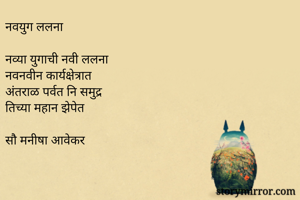 नवयुग ललना
नव्या युगाची नवी ललना
नवनवीन कार्यक्षेत्रात
अंतराळ पर्वत नि समुद्र
तिच्या महान झेपेत
सौ मनीषा आवेकर
storymirror.com